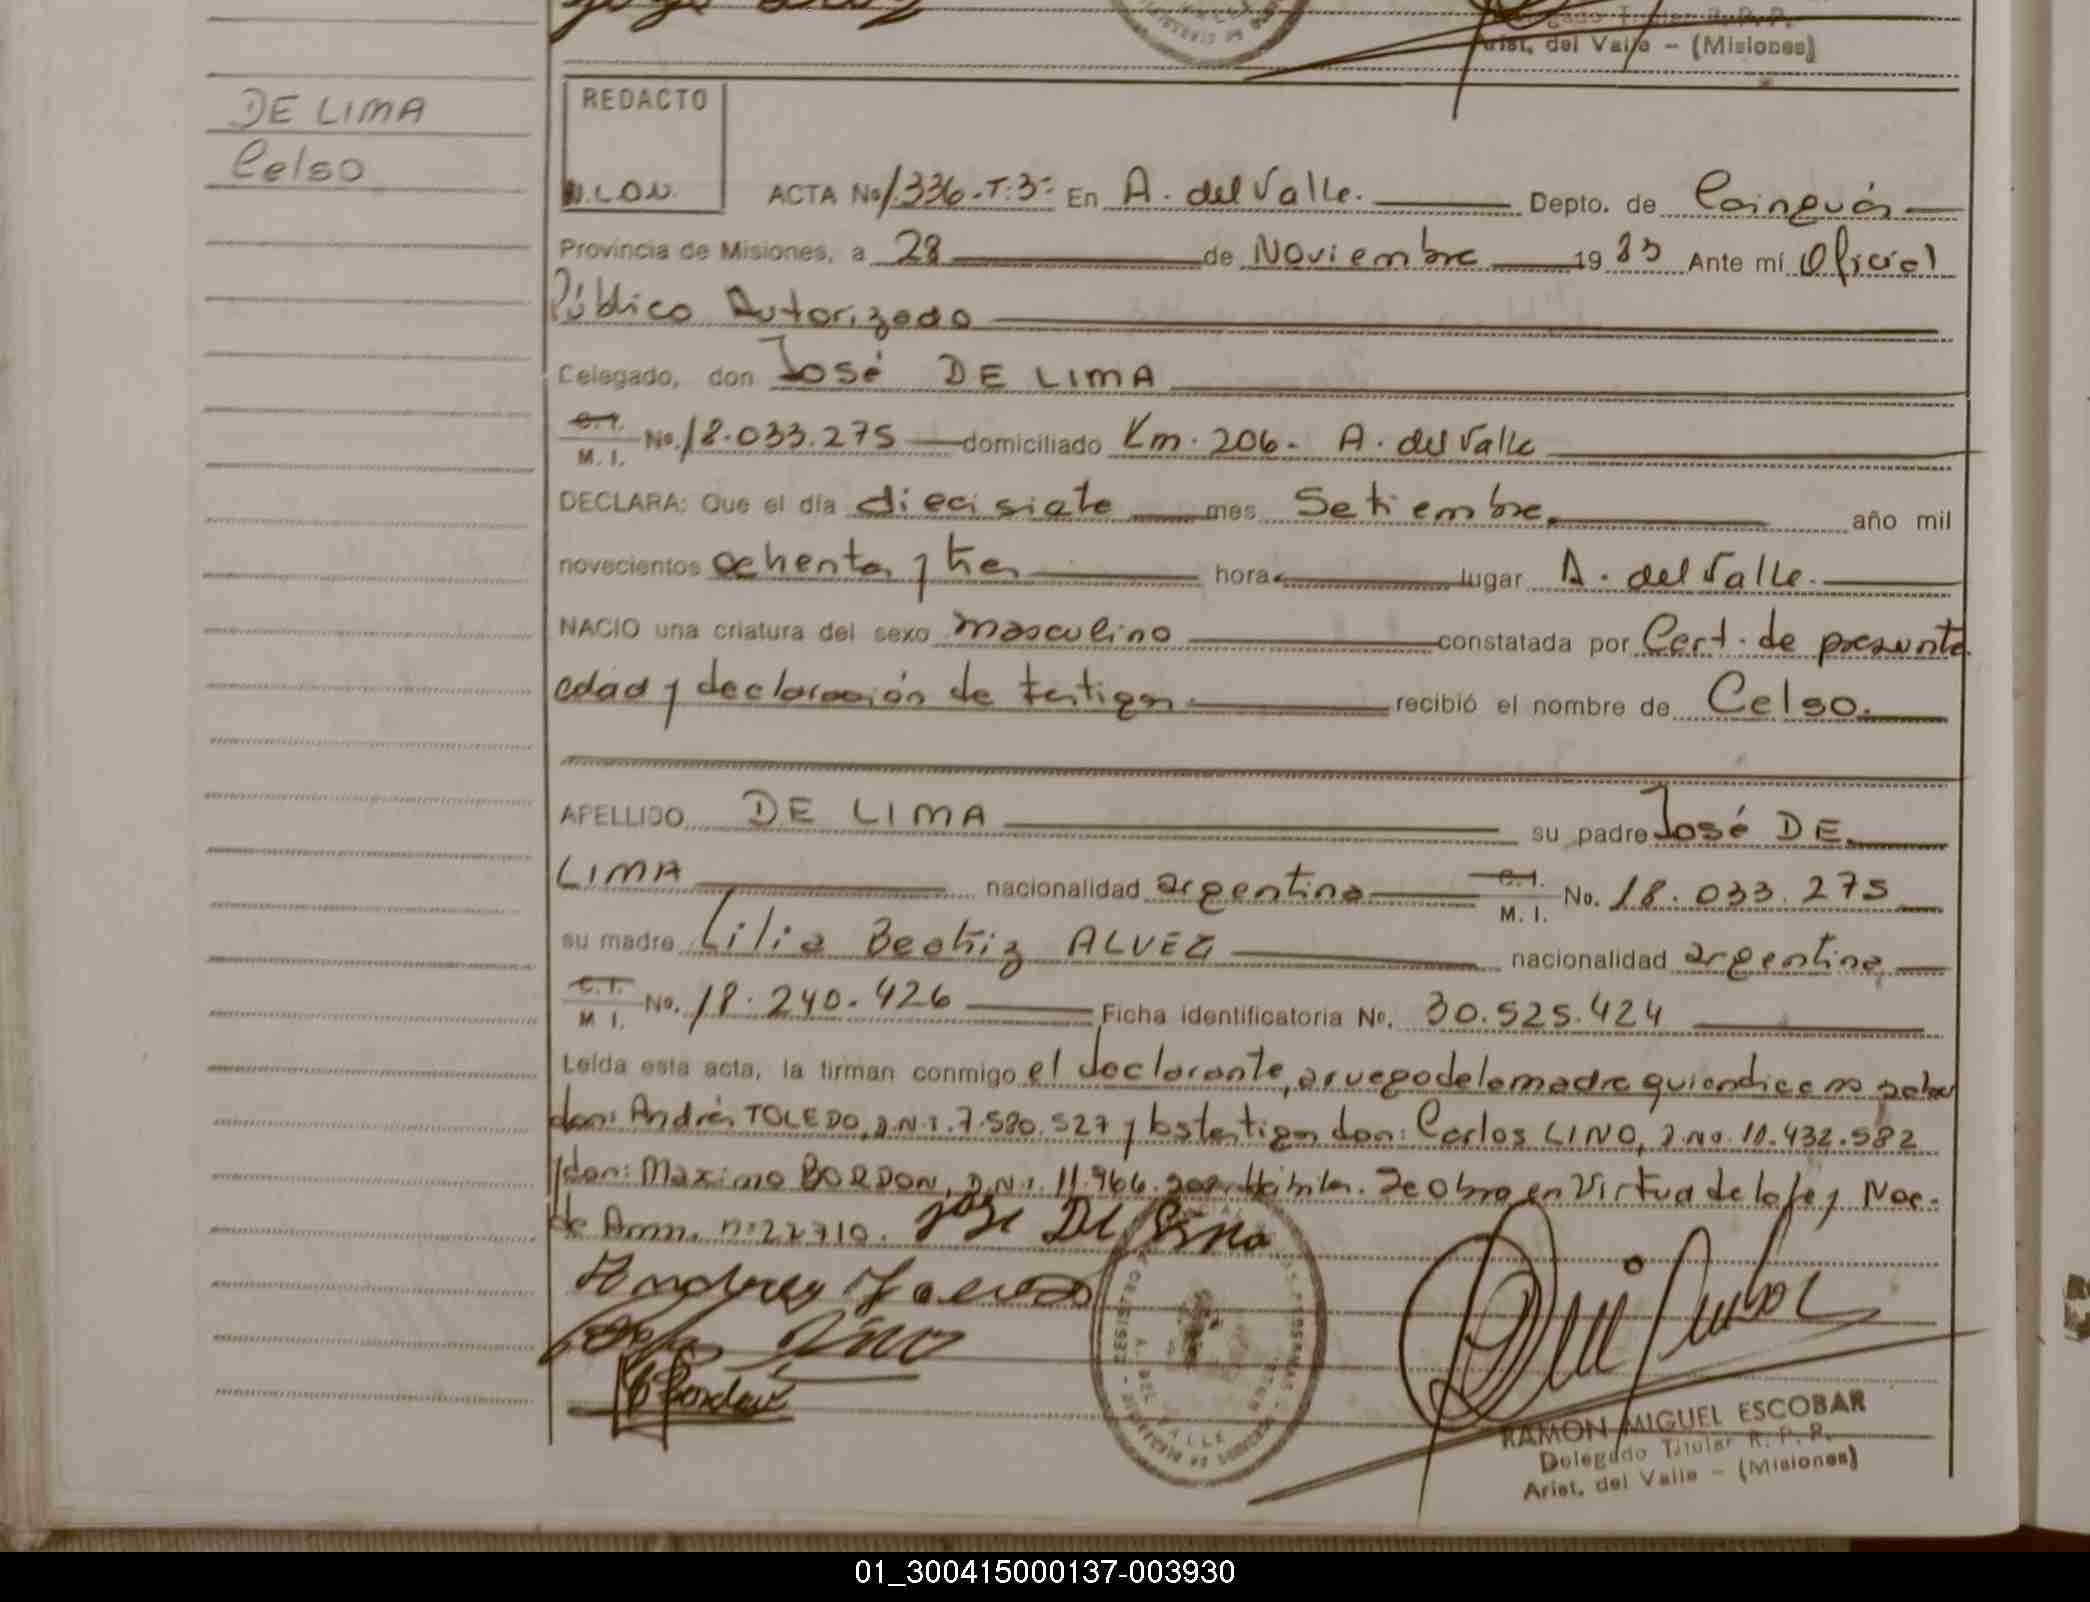 Arist. del Valle - (Misiones)
DE LIMA
Celso
REDACTO
ACTA No 1.336-T:3º En A. del Valle. Depto. de Cainguás
Provincia de Misiones, a 28 de Noviembre 1983 Ante mí Oficial
Público Autorizado
Celegado, don José DE LIMA
C.I.
M. I. No. 18.033.275 domiciliado Km. 206- A. del Valle
DECLARA: Que el día diecisiete mes Setiembre año mil
novecientos ochenta y tres hora lugar A. del Valle.
NACIO una criatura del sexo masculino constatada por Cert. de presunta
edad y declaración de testigos recibió el nombre de Celso.
APELLIDO DE LIMA su padre José DE
LIMA nacionalidad argentina C.I. M. I. No. 18.033.275
su madre Lilia Beatriz ALVEZ nacionalidad argentina
C.I. M I. No. 18.240.426 Ficha identificatoria No. 30.525.424
Leída esta acta, la firman conmigo el declarante, a ruego de la madre quien dice no saber
don: Andrés TOLEDO, D.N.I. 7.580.527 y los testigos don: Carlos LINO, 10.432.582
y don: Maximo BORDON, D.N.I. 11.966. Hábiles. Se obra en Virtud de la ley Nac.
de Amn. nº 22710. José De Lima
RAMON MIGUEL ESCOBAR
Delegado Titular R. P. P.
Arist. del Valle - (Misiones)
01_300415000137-003930